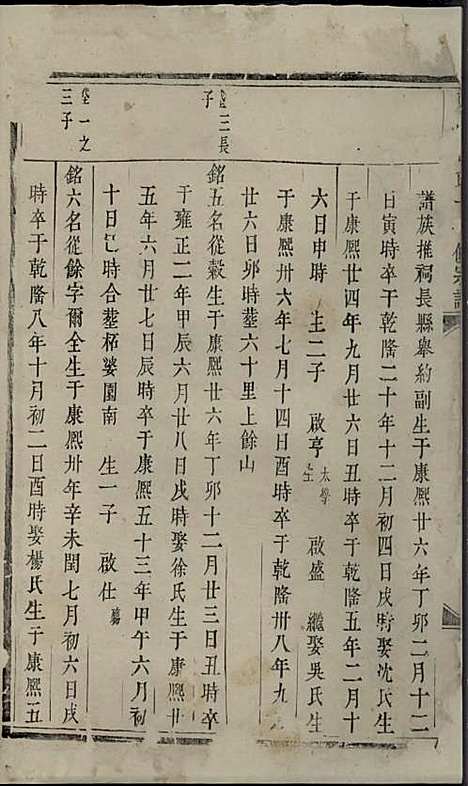 譜族推祠長縣舉約副生于康熙廿六年丁卯二月十二
日寅時卒于乾隆二十年十二月初四日戌時娶沈氏生
于康熙廿四年九月廿六日丑時卒于乾隆五年二月十
六日申時 生二子 啟亨 太學生 啟盛 繼娶吳氏生
于康熙卅六年七月十四日酉時卒于乾隆卅八年九
廿六日卯時塟六十里上餘山
三長子
銘五名從穀生于康熙廿六年丁卯十二月廿三日丑時卒
于雍正二年甲辰六月廿八日戌時娶徐氏生于康熙廿
五年六月廿七日辰時卒于康熙五十三年甲午六月初
十日巳時合塟柘婆園南 生一子 啟仕
一之三子
銘六名從餘字爾全生于康熙卅年辛未閏七月初六日戌
時卒于乾隆八年十月初二日酉時娶楊氏生于康熙五